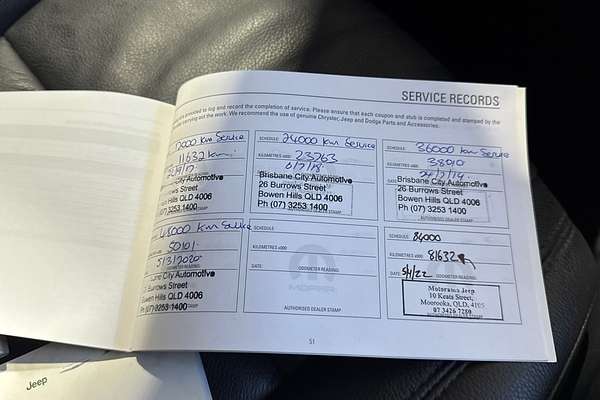 SERVICE RECORDS
provided to log and record the completion of service. Please ensure that each coupon and stub is completed and stamped by the
carrying out the work. We recommend the use of genuine Chrysler, Jeep and Dodge Parts and Accessories.
12000 Km Service
11632 km
Brisbane City Automotive
Burrows Street
Bowen Hills QLD 4006
Ph (07) 3253 1400
SCHEDULE: 24000 Km Service
KILOMETRES x000: 23763
6/7/18
Brisbane City Automotive
26 Burrows Street
Bowen Hills QLD 4006
Ph (07) 3253 1400
AUTHORISED DEALER STAMP
36000 Km Service
KILOMETRES x000: 38910
DATE: 24/7/19
Brisbane City Automotive
26 Burrows Street
Bowen Hills QLD 4006
Ph (07) 3253 1400
AUTHORISED DEALER STAMP
48000 Km
50101
5/3/2020
ODOMETER READING:
ane City Automotive
Burrows Street
Bowen Hills QLD 4006
Ph (07) 3253 1400
SCHEDULE:
KILOMETRES x000:
DATE:
ODOMETER READING:
MOPAR
AUTHORISED DEALER STAMP
SCHEDULE: 84000
KILOMETRES x000: 81632
DATE: 5/4/22 ODOMETER READING:
Motorama Jeep
10 Keats Street,
Moorooka, QLD, 4105
07 3426 7280
51
Jeep